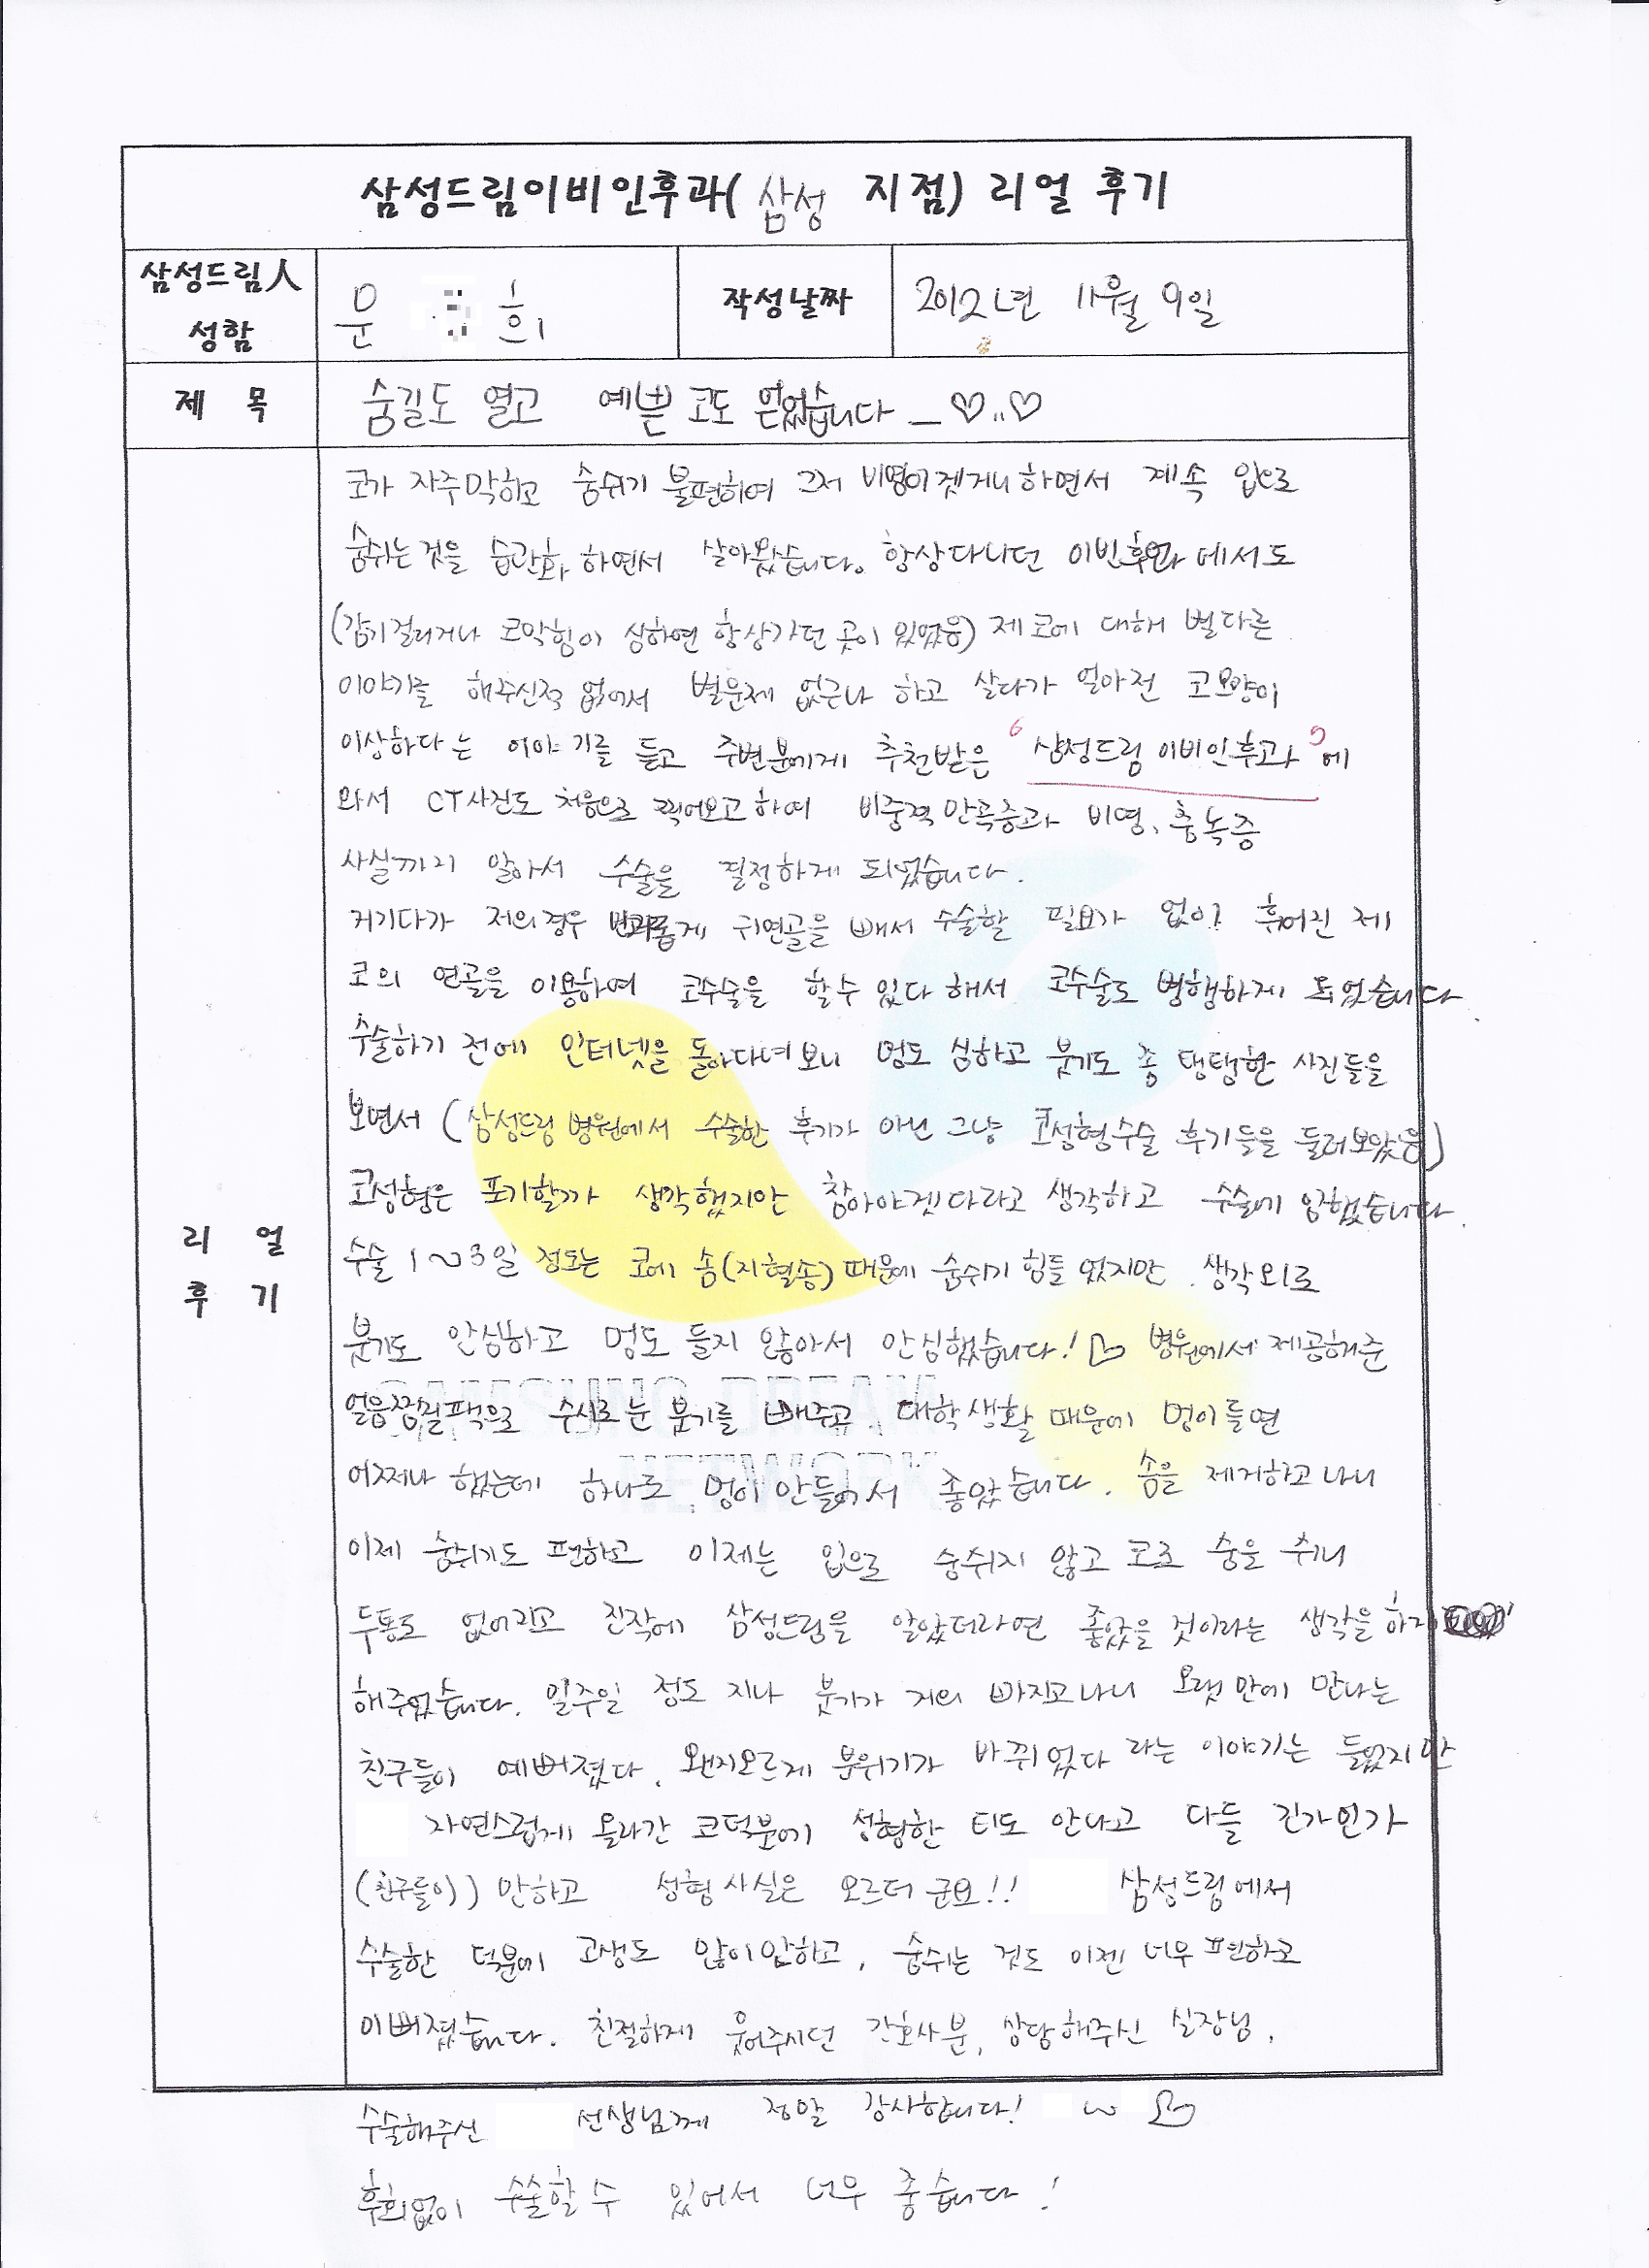 삼성드림이비인후과( 삼성 지점) 리얼 후기
삼성드림人 성함
문 희
작성날짜
2012년 11월 9일
제 목
숨길도 열고 예쁜 코도 얻었습니다 _♡..♡
리 얼 후 기
코가 자주막히고 숨쉬기 불편하여 그저 비염이겟거니하면서 계속 입으로
숨쉬는것을 습관화 하면서 살아왔습니다. 항상다니던 이빈후과에서도
(감기걸리거나 코막힘이 심하면 항상가던 곳이 있었음) 제 코에 대해 별다른
이야기를 해주신적 없어서 별문제 없구나 하고 살다가 얼마전 코모양이
이상하다는 이야기를 듣고 주변분에게 추천받은 "삼성드림 이비인후과"에
와서 CT사진도 처음으로 찍어보고하여 비중격만곡증과 비염, 축농증
사실까지 알아서 수술을 결정하게 되었습니다.
거기다가 저의경우 귀연골을 빼서 수술할 필요가 없이 휘어진 제
코의 연골을 이용하여 코수술을 할수 있다 해서 코수술도 병행하게 되었습니다.
수술하기 전에 인터넷을 돌아다녀보니 멍도 심하고 붓기도 좀 탱탱한 사진들을
보면서 (삼성드림병원에서 수술한 후기가 아닌 그냥 코성형수술 후기들을 둘러보았음)
코성형은 포기할까 생각했지만 참아야겟다라고 생각하고 수술에 임했습니다.
수술 1~3일 정도는 코에 솜(지혈솜)때문에 숨쉬기 힘들었지만 생각외로
붓기도 안심하고 멍도 들지 않아서 안심했습니다!♡ 병원에서 제공해준
얼음찜질팩으로 수시로 눈 붓기를 빼주고, 대학생활 때문에 멍이들면
어쩌나 했는데 하나도 멍이안들어서 좋았습니다. 솜을 제거하고나니
이제 숨쉬기도 편하고 이제는 입으로 숨쉬지 않고 코로 숨을 쉬니
두통도 없어지고 진작에 삼성드림을 알았더라면 좋았을 것이라는 생각을 하게
해주었습니다. 일주일 정도 지나 붓기가 거의 빠지고나니 오랫만에 만나는
친구들이 예뻐졌다, 왠지모르게 분위기가 바뀌었다 라는 이야기는 들었지만
자연스럽게 올라간 코덕분에 성형한 티도 안나고 다들 긴가민가
(친구들이) 만하고 성형사실은 모르더군요!! 삼성드림에서
수술한 덕분에 고생도 많이안하고, 숨쉬는 것도 이젠 너무 편하고
이뻐졌습니다. 친절하게 웃어주시던 간호사분, 상담해주신 실장님,
수술해주신 선생님께 정말 감사합니다! ~ ♡
후회없이 수술할수 있어서 너무 좋습니다!
SAMSUNG DREAM
NETWORK